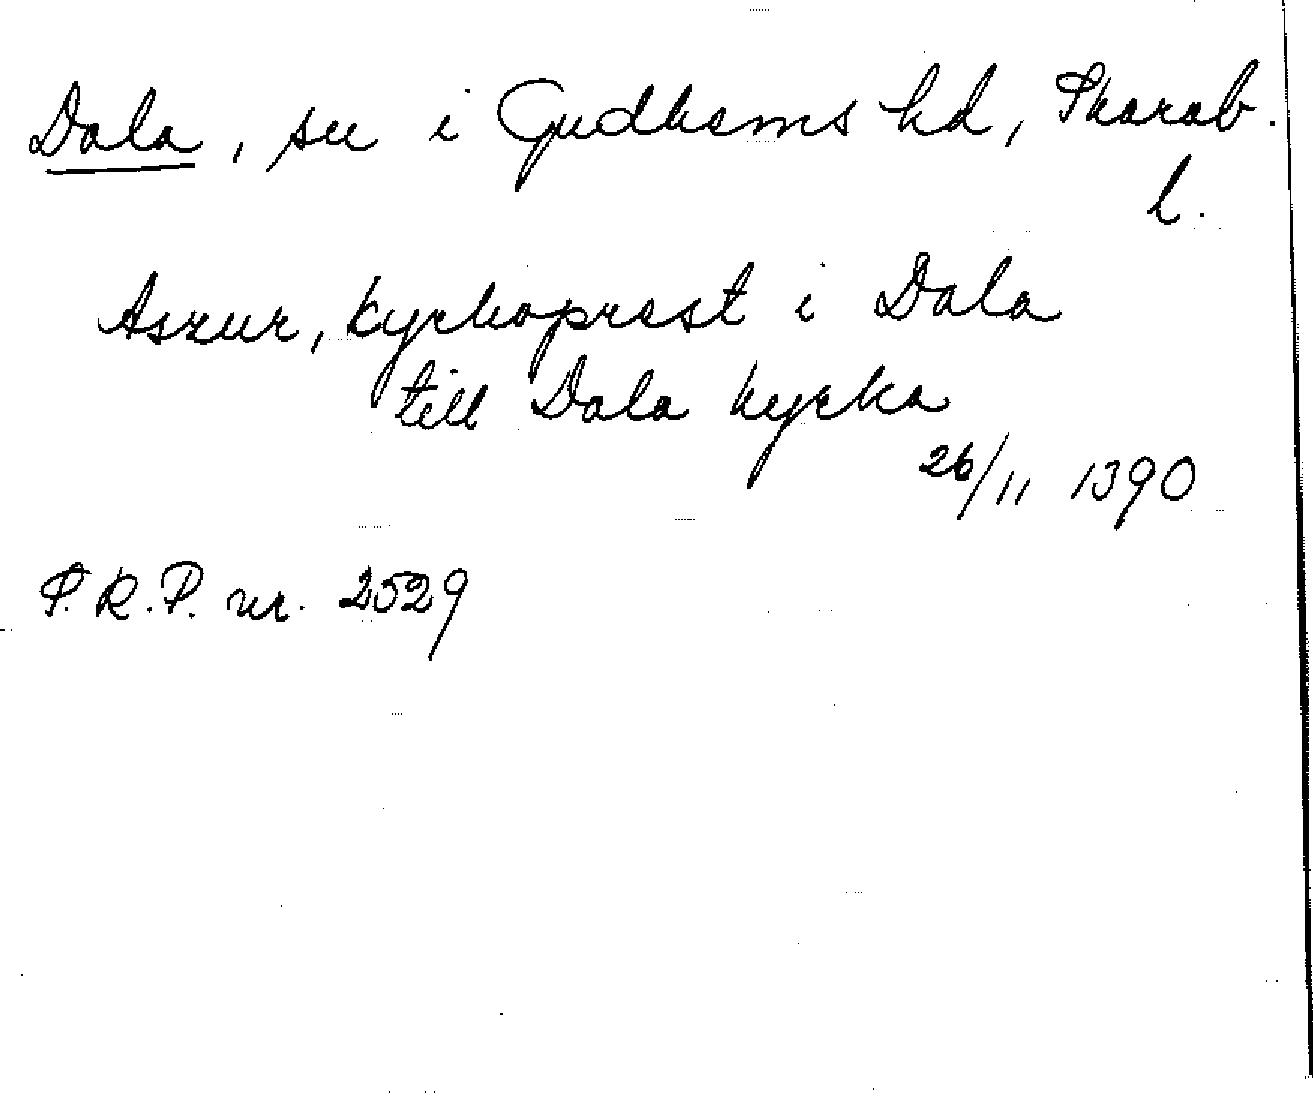 Dala, sn i Gudhems hd, Skarab.
l.
Aszur, kyrkoprest i Dala
till Dala kyrka
26/11 1390
P.R.P. nr. 2529